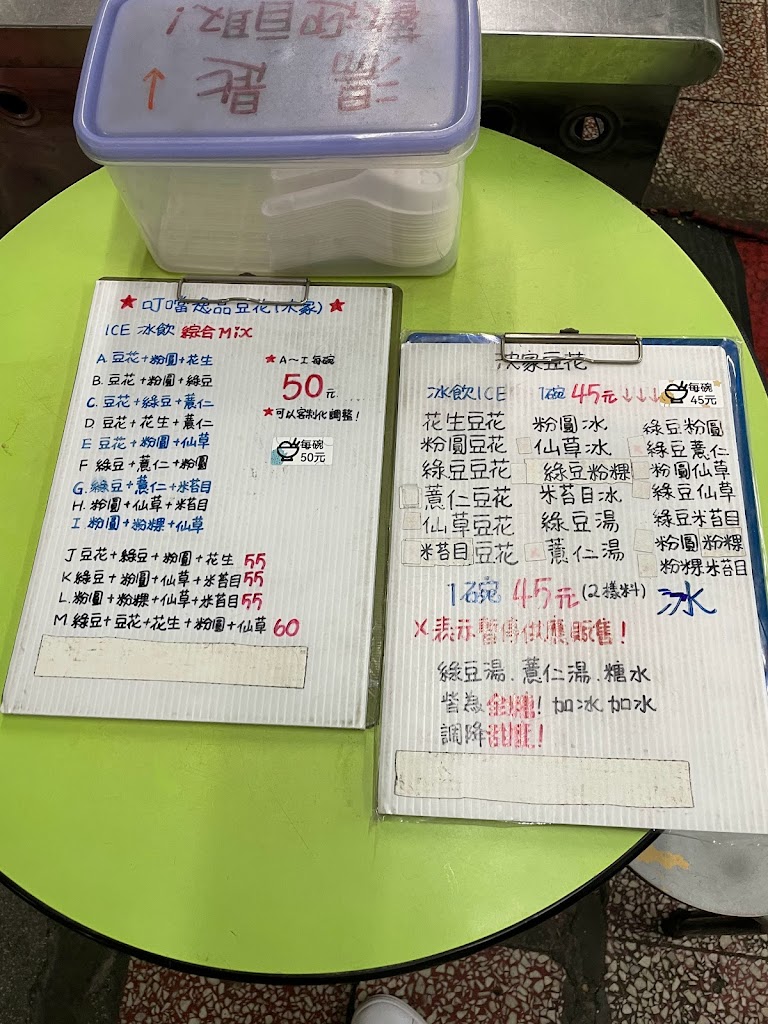 歡迎自取!
湯匙
↑
★ 叮噹逸品豆花(沈家) ★
ICE 冰飲 綜合Mix
A. 豆花+粉圓+花生
B. 豆花+粉圓+綠豆
C. 豆花+綠豆+薏仁
D 豆花+花生+薏仁
E 豆花+粉圓+仙草
F 綠豆+薏仁+粉圓
G. 綠豆+薏仁+米苔目
H. 粉圓+仙草+米苔目
I. 粉圓+粉粿+仙草
★ A～I 每碗
50元
★可以客制化調整!
每碗
50元
J 豆花+綠豆+粉圓+花生 55
K 綠豆+粉圓+仙草+米苔目 55
L. 粉圓+粉粿+仙草+米苔目 55
M 綠豆+豆花+花生+粉圓+仙草 60
沈家豆花
冰飲ICE 1碗 45元↓↓↓
每碗
45元
花生豆花 粉圓冰 綠豆粉圓
粉圓豆花 仙草冰 綠豆薏仁
綠豆豆花 綠豆粉粿 粉圓仙草
薏仁豆花 米苔目冰 綠豆仙草
仙草豆花 綠豆湯 綠豆米苔目
米苔目豆花 薏仁湯 粉圓粉粿
粉粿米苔目
1碗 45元(2樣料) 冰
X表示暫停供應販售!
綠豆湯.薏仁湯.糖水
皆為! 加冰加水
調降!